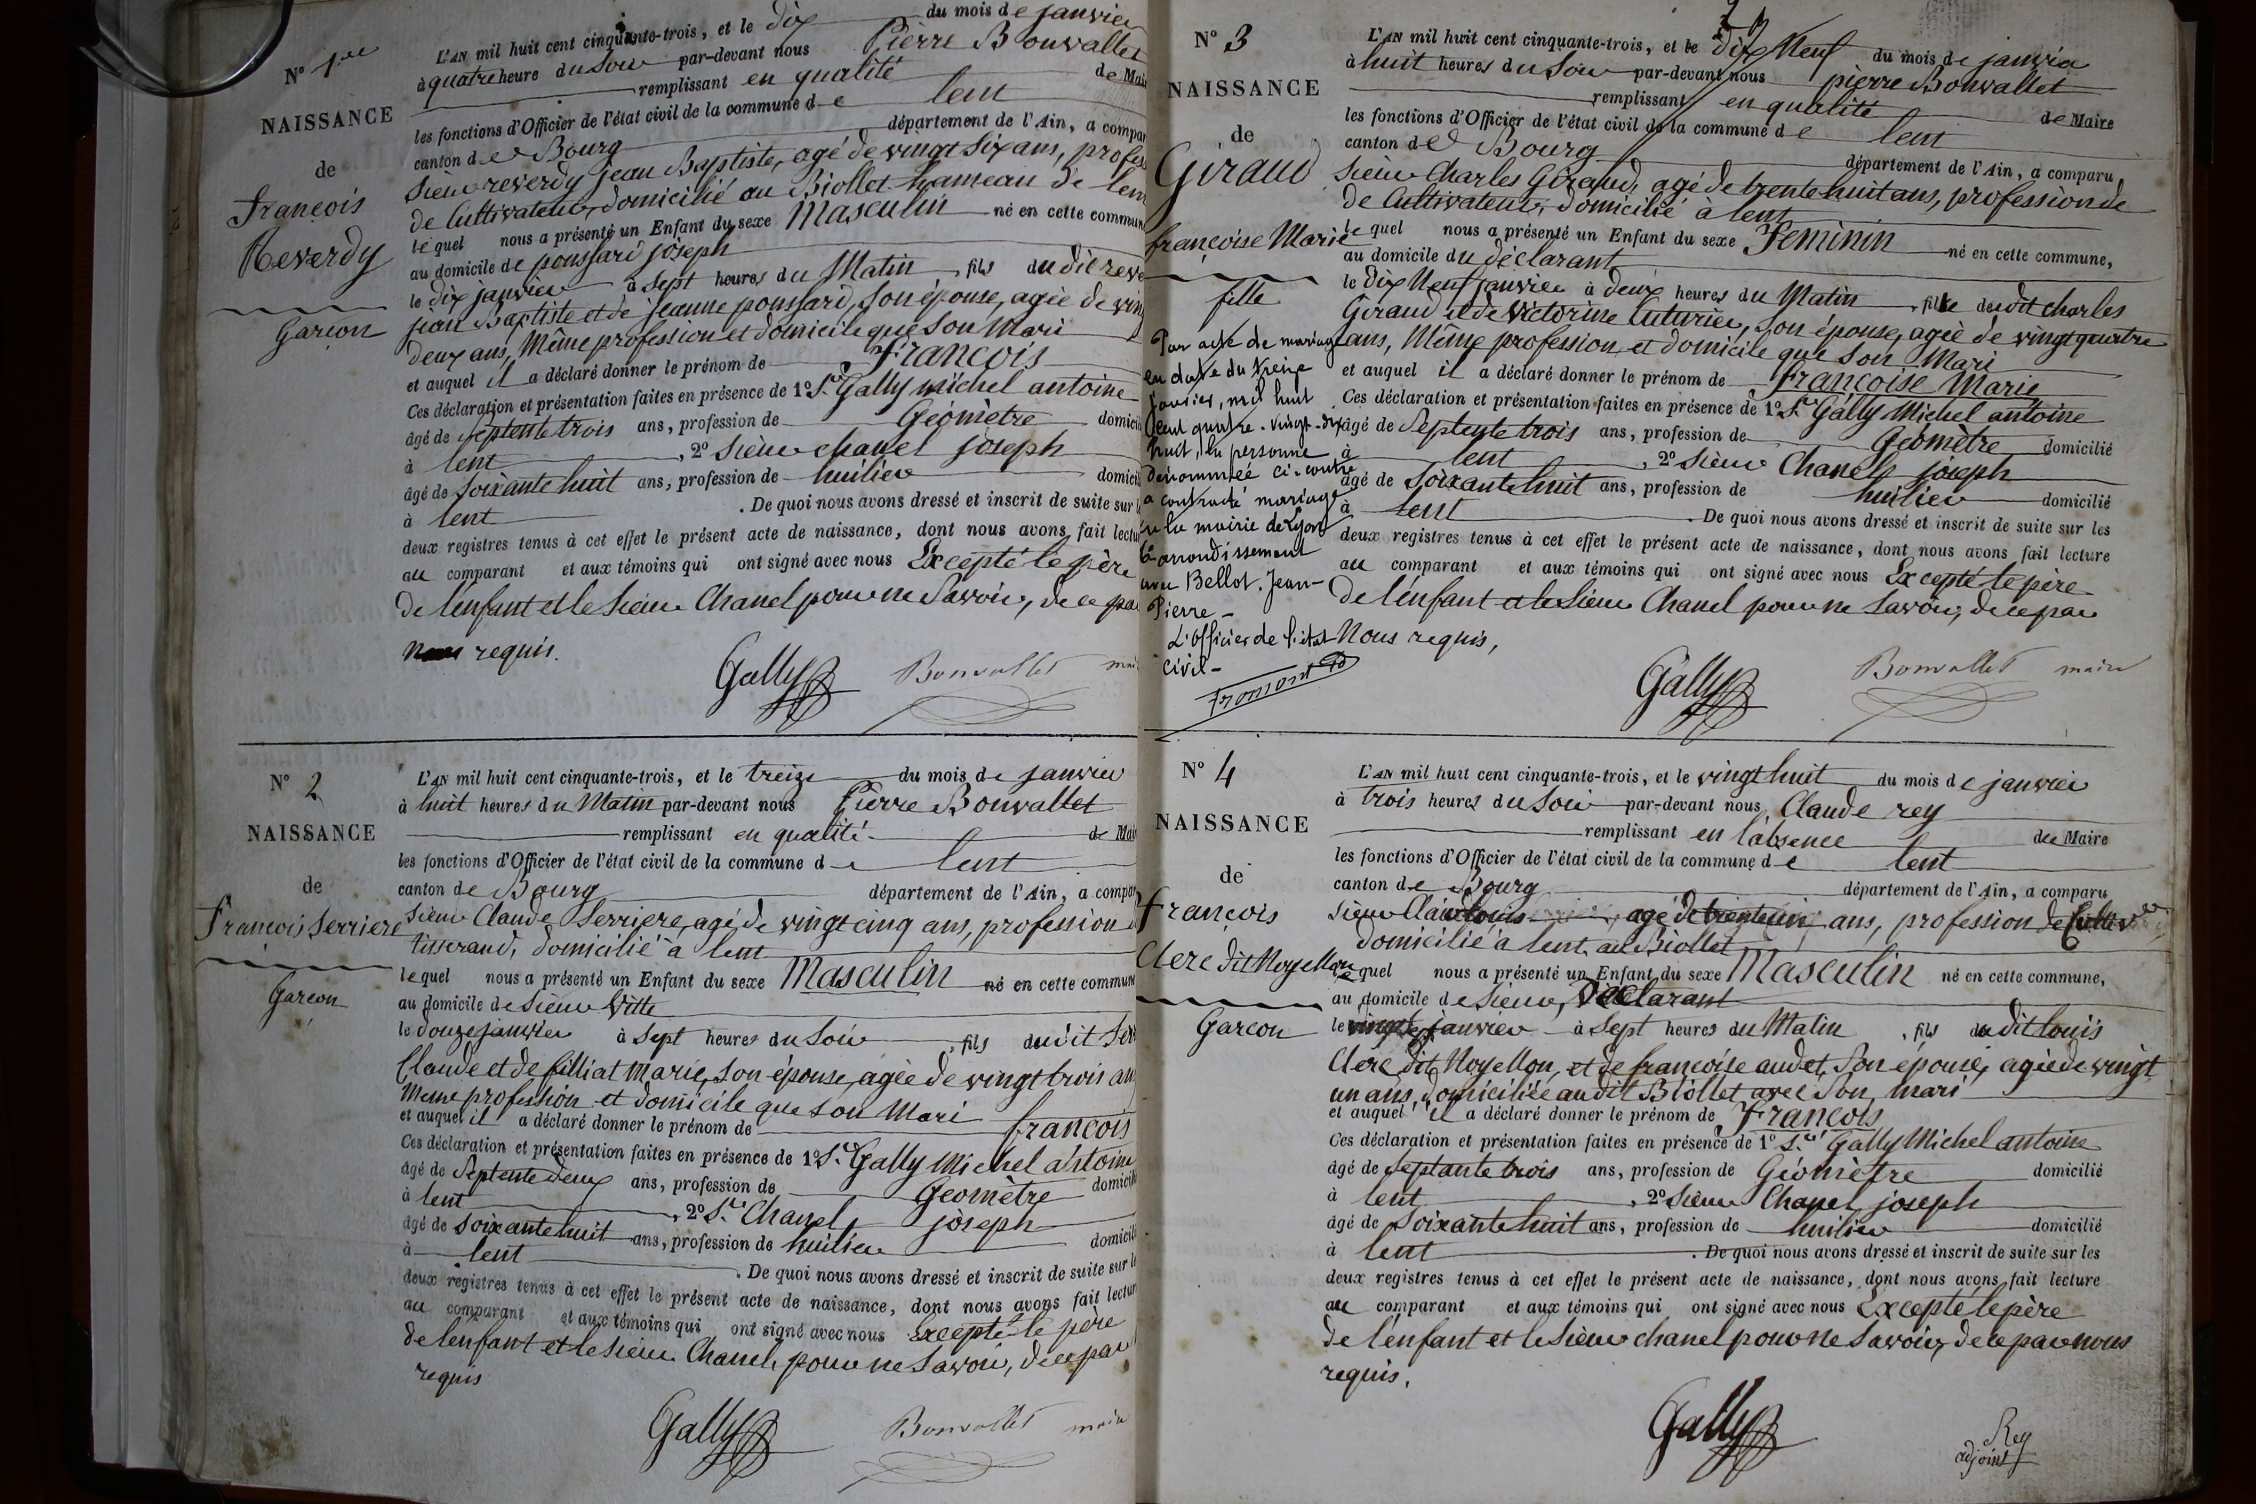 N° 1er
NAISSANCE
de
François
Reverdy
Garçon
L'AN mil huit cent cinquante-trois, et le dix du mois de janvier
à quatre heure du Soir par-devant nous Pierre Bonvallet
remplissant en qualité de Mai
les fonctions d'Officier de l'état civil de la commune de lent
canton de Bourg département de l'Ain, a compar
Sieur reverdy jean Baptiste, agé de vingt Six ans, profess
de Cultivateur, domicilié au Biollet hameau de lent
le quel nous a présenté un Enfant du sexe Masculin né en cette commun
au domicile de ponsard joseph
le dix janvier à Sept heures du Matin, fils du dit reve
jean Baptiste et de jeanne ponssard, Son épouse, agée de ving
deux ans, Même profession et domicile que Son Mari
et auquel il a déclaré donner le prénom de François
Ces déclaration et présentation faites en présence de 1° Sr Gally michel antoine
âgé de Septente trois ans, profession de Géomètre domicil
à lent, 2° Sieur chanel joseph
âgé de Soixante huit ans, profession de huilier domicil
à lent. De quoi nous avons dressé et inscrit de suite sur l
deux registres tenus à cet effet le présent acte de naissance, dont nous avons fait lectur
au comparant et aux témoins qui ont signé avec nous Excepté le père
de l'enfant et le Sieur Chanel pour ne Savoir, de ce pa
Nous requis.
Gally Bonvallet mai
N° 2
NAISSANCE
de
François Serriere
Garçon
L'AN mil huit cent cinquante-trois, et le treize du mois de janvier
à huit heures du Matin par-devant nous Pierre Bonvallet
remplissant en qualité de Mai
les fonctions d'Officier de l'état civil de la commune de lent
canton de Bourg département de l'Ain, a compar
Sieur Claude Serriere, agé de vingt cinq ans, profession d
tisserand, domicilié à lent
le quel nous a présenté un Enfant du sexe Masculin né en cette commune
au domicile de Sieur Vitte
le douze janvier à Sept heures du Soir, fils du dit Ser
Claude et de filliat Marie, Son épouse, agée de vingt trois an
Meme profession et domicile que Son Mari
et auquel il a déclaré donner le prénom de françois
Ces déclaration et présentation faites en présence de 1° Sr Gally Michel antoine
âgé de Septente deux ans, profession de Geomètre domicil
à lent, 2° Sr Chanel joseph
âgé de Soixante huit ans, profession de huilier domicil
à lent. De quoi nous avons dressé et inscrit de suite sur l
deux registres tenus à cet effet le présent acte de naissance, dont nous avons fait lectur
au comparant et aux témoins qui ont signé avec nous Excepté le père
de l'enfant et le Sieur Chanel, pour ne Savoir, de ce par
requis
Gally Bonvallet maire
N° 3
NAISSANCE
de
Giraud
françoise Marie
fille
Par acte de mariage
en date du treize
janvier, mil huit
cent quatre-vingt-dix
huit, la personne
dénommée ci-contre
a contracté mariage
à la mairie de Lyon
6e arrondissement
avec Bellot. Jean-
Pierre-
L'Officier de l'état
civil-
Fromont
L'AN mil huit cent cinquante-trois, et le dix Neuf du mois de janvier
à huit heures du Soir par-devant nous pierre Bonvallet
remplissant en qualité de Maire
les fonctions d'Officier de l'état civil de la commune de lent
canton de Bourg département de l'Ain, a comparu
Sieur Charles Giraud, agé de trente huit ans, profession de
de Cultivateur, domicilié à lent
le quel nous a présenté un Enfant du sexe Feminin né en cette commune,
au domicile du déclarant
le dix Neuf janvier à deux heures du Matin, fille du dit charles
Giraud et de Victorine Cuturier, Son épouse, agée de vingt quatre
ans, Même profession et domicile que Son Mari
et auquel il a déclaré donner le prénom de Françoise Marie
Ces déclaration et présentation faites en présence de 1° Sr Gally Michel antoine
âgé de Septente trois ans, profession de Géomètre domicilié
à lent, 2° Sieur Chanel joseph
âgé de Soixante huit ans, profession de huilier domicilié
à lent. De quoi nous avons dressé et inscrit de suite sur les
deux registres tenus à cet effet le présent acte de naissance, dont nous avons fait lecture
au comparant et aux témoins qui ont signé avec nous Excepté le père
de l'enfant et le Sieur Chanel pour ne Savoir, de ce par
Nous requis,
Gally Bonvallet maire
N° 4
NAISSANCE
de
françois
Clerc dit Noyellon
Garçon
L'AN mil huit cent cinquante-trois, et le vingt huit du mois de janvier
à trois heures du Soir par-devant nous Claude rey
remplissant en l'absence du Maire
les fonctions d'Officier de l'état civil de la commune de lent
canton de Bourg département de l'Ain, a comparu
Sieur louis agé de trente ans, profession de Cultiv
domicilié à lent au Biollet
le quel nous a présenté un Enfant du sexe Masculin né en cette commune,
au domicile de Sieur, Déclarant
le janvier à Sept heures du Matin, fils du dit louis
Clerc dit Noyellon, et de françoise audet, Son épouse, agée de vingt
un ans, domiciliée au dit Biollet avec Son mari
et auquel il a déclaré donner le prénom de François
Ces déclaration et présentation faites en présence de 1° Sr Gally Michel antoine
âgé de Septante trois ans, profession de Géomètre domicilié
à lent, 2° Sieur Chanel joseph
âgé de Soixante huit ans, profession de huilier domicilié
à lent. De quoi nous avons dressé et inscrit de suite sur les
deux registres tenus à cet effet le présent acte de naissance, dont nous avons fait lecture
au comparant et aux témoins qui ont signé avec nous Excepté le père
de l'enfant et le Sieur chanel pour ne Savoir, de ce par nous
requis.
Gally Rey
adjoint